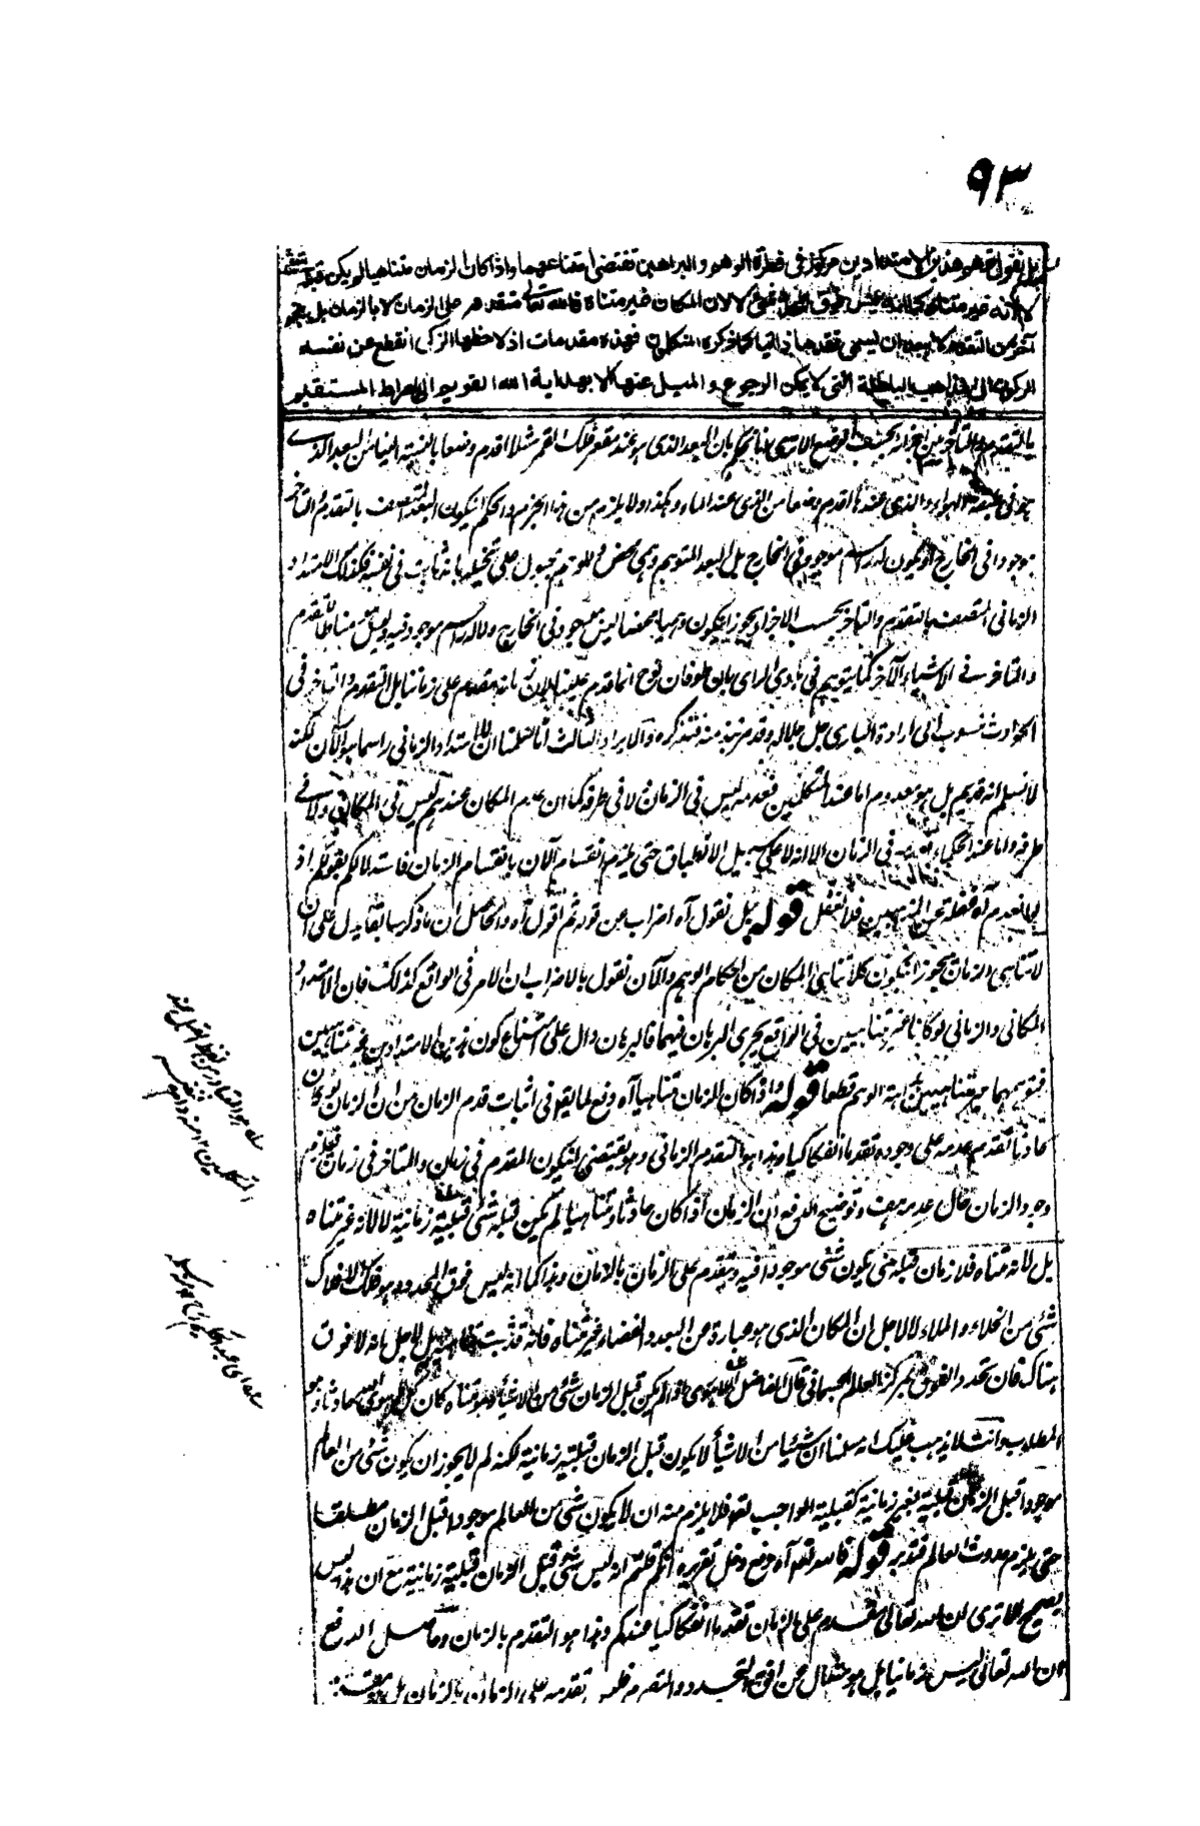 ٩٣
بل نقول توهم هذين الامتدادين مركوز في فطرة الوهم والبراهين تقتضي امتناعهما واذا كان الزمان متناهيا لم يكن قبله شئ
لا لانه غير متناه كما انه ليس فوق شئ لا لان المكان غير متناه فالله تعالى متقدم على الزمان لا بالزمان بل بنحو
آخر من التقدم لا يبعد ان يسمى تقدما ذاتيا كما ذكره المتكلمون فهذه مقدمات اذا لاحظها الزكي انقطع عن نفسه
الركون الى المذاهب الباطلة التي لا يمكن الرجوع والميل عنها الا بهداية الله القويم الى الصراط المستقيم
بالتقدم والتأخر بين اجزائه بحسب الوضع الا ترى انا نحكم بان البعد الذي هو عند مقعر فلك القمر مثلا اقدم وضعا بالنسبة الينا من البعد الذي
هو في طبقة الهواء والذي عندها اقدم وضعا من الذي عند الماء وهكذا ولا يلزم من هذا الجزم والحكم ان يكون البعد المتصف بالتقدم والتأخر
موجودا في الخارج او يكون له راسم موجود في الخارج بل البعد المتوهم وهمي محض وللوهم قبول على تخيله بانه ثابت في نفسه فكذلك الامتداد
الزماني المتصف بالتقدم والتأخر بحسب الاجزاء يجوز ان يكون وهميا محضا ليس بموجود في الخارج ولا له راسم موجود فيه ويجعل مناطا للتقدم
والتأخر في الاشياء الآخر كما يتوهم في بادي الراي بان طوفان نوح انما قدم علينا لان زمانه مقدم على زماننا بل التقدم والتأخر في
الحوادث منسوب الى ارادة الباري جل جلاله وقد مر نبذ منه فتذكره والايراد الثالث انا سلمنا ان للامتداد الزماني راسما هو الآن لكنه
لا نسلم انه قديم بل هو معدوم اما عند المتكلمين فعدمه ليس في الزمان ولا في طرفه كما ان عدم المكان عندهم ليس في المكان ولا في
طرفه واما عند الحكماء فعدمه في الزمان الا انه لا على سبيل الانطباق حتى يلزم انقسام الآن بانقسام الزمان فاستدلالكم بقولكم اذ
لو انعدم آه غفلة عن المذهبين فلا تغفل قوله بل نقول آه اضراب عن قوله ثم اقول آه والحاصل ان ما ذكر سابقا يدل على ان
لا تناهي الزمان يجوز ان يكون كلا تناهي المكان من احكام الوهم والآن نقول بالاضراب ان الامر في الواقع كذلك فان الامتداد
المكاني والزماني لو كانا غير متناهيين في الواقع يجري البرهان فيهما فالبرهان دال على امتناع كون هذين الامتدادين غير متناهيين
فتوهمهما غير متناهيين من بداهة الوهم قطعا قوله واذا كان الزمان متناهيا آه دفع لما يقو في اثبات قدم الزمان من ان الزمان لو كان
حادثا تقدم عدمه على وجوده تقدما انفكاكيا وهذا هو التقدم الزماني وهو يقتضي ان يكون المقدم في زمان والمتأخر في زمان فيلزم
وجود الزمان حال عدمه هف وتوضيح الدفع ان الزمان اذا كان حادثا ومتناهيا لم يكن قبله شئ قبلية زمانية لا لانه غير متناه
بل لانه متناه فلا زمان قبله حتى يكون شئ موجودا فيه ويتقدم على الزمان بالزمان وهذا كما انه ليس فوق المحدد وهو فلك الافلاك
شئ من الخلاء والملاء لا لاجل ان المكان الذي هو عبارة عن البعد والفضاء غير متناه فانه قد ثبت تناهيه بل لاجل انه لا فوق
هناك فان تحدد الفوق بمركز العالم الجسماني قال الفاضل اللبكني اذا لم يكن قبل الزمان شئ من الاشياء وهو متناه كان كل ما سوى الله حادثا وهو
المطلوب وانت لا يذهب عليك انه سلمنا ان شيئا من الاشياء لا يكون قبل الزمان قبلية زمانية لكنه لم لا يجوز ان يكون شئ من العالم
موجودا قبل الزمان قبلية بغير زمانية كقبلية الواجب تعه فلا يلزم منه ان لا يكون شئ من العالم موجودا قبل الزمان مطلقا
حتى يلزم حدوث العالم فتدبر قوله فالله تعه آه دفع دخل تقريره انكم قلتم انه ليس شئ قبل الزمان قبلية زمانية مع ان هذا ليس
بصحيح الا ترى ان الله تعالى متقدم على الزمان تقدما انفكاكيا عندكم وهذا هو التقدم بالزمان وحاصل الدفع
ان الله تعالى ليس زمانيا بل هو متعال عن افق التجدد والتصرم فليس تقدمه على الزمان بالزمان بل